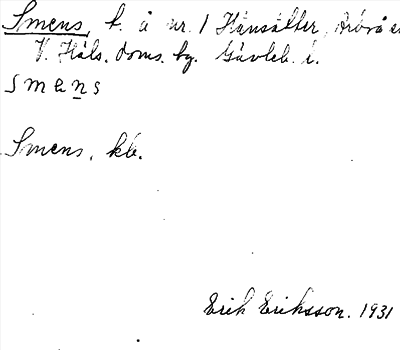 Smens, h. å nr. 1 Hänsätter, Arbrå
V. Häls. doms. hg. Gävleb. l.
smens
Smens, kle.
Erik Eriksson. 1931